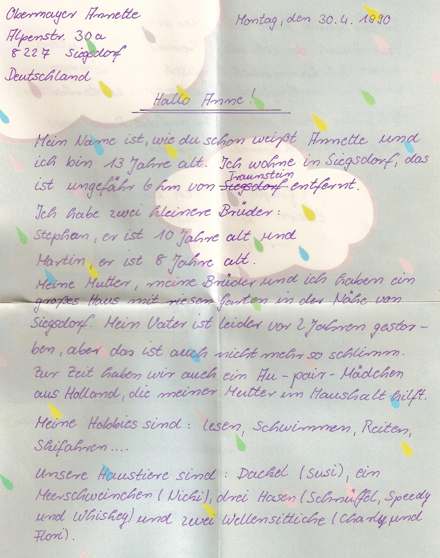 Obermayer Annette
Alpenstr. 30a
8227 Siegsdorf
Deutschland
Montag, den 30.4.1990
Hallo Anne!
Mein Name ist, wie du schon weißt Annette und
ich bin 13 Jahre alt. Ich wohne in Siegsdorf, das
ist ungefähr 6 km von Siegsdorf Traunstein entfernt.
Ich habe zwei kleinere Brüder:
Stephan, er ist 10 Jahre alt und
Martin, er ist 8 Jahre alt.
Meine Mutter, meine Brüder und ich haben ein
großes Haus mit riesen Garten in der Nähe von
Siegsdorf. Mein Vater ist leider vor 2 Jahren gestor-
ben, aber das ist auch nicht mehr so schlimm.
Zur Zeit haben wir auch ein Au-pair-Mädchen
aus Holland, die meiner Mutter im Haushalt hilft.
Meine Hobbies sind: lesen, Schwimmen, Reiten,
Skifahren....
Unsere Haustiere sind: Dackel (Susi), ein
Meerschweinchen (Nicki), drei Hasen (Schnüffel, Speedy
und Whiskey) und zwei Wellensittiche (Charly und
Flori).